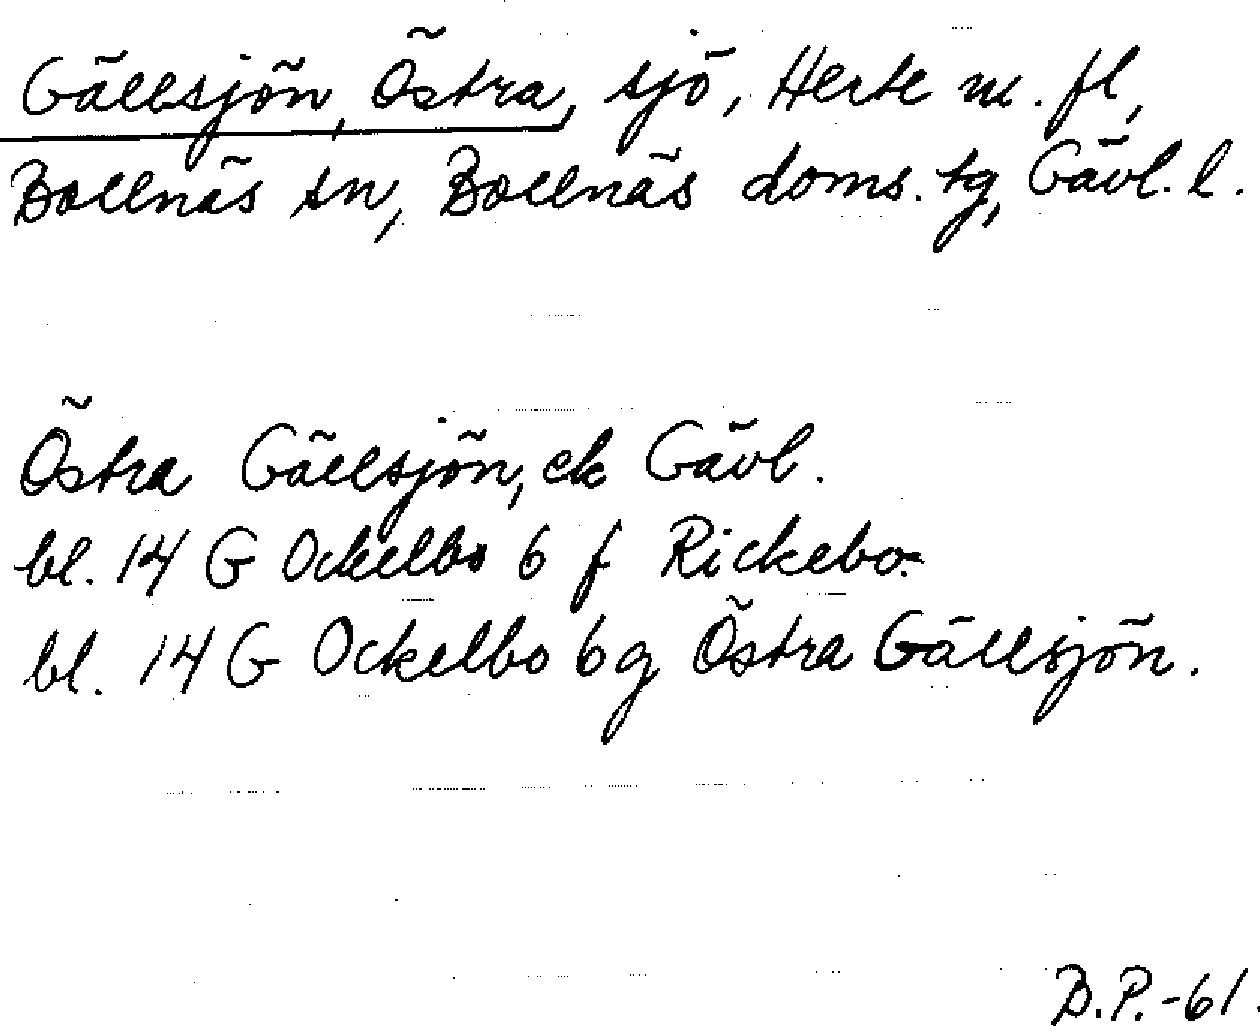 Gällsjön, Östra, sjö, Herte m. fl,
Bollnäs sn, Bollnäs doms. tg, Gävl. l.
Östra Gällsjön, ek Gävl.
bl. 14 G Ockelbo 6 f Rickebo.
bl. 14 G Ockelbo 6g Östra Gällsjön.
B.P.-61.